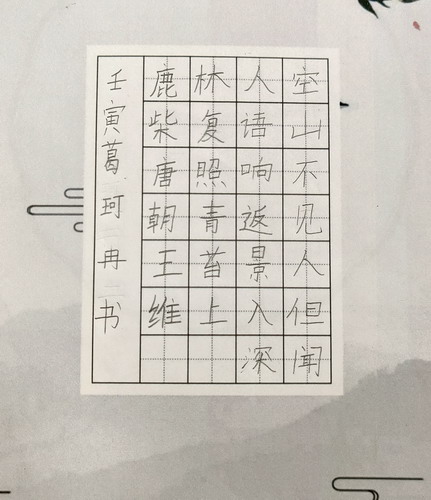 空山不见人但闻
人语响返景入深
林复照青苔上
鹿柴唐朝王维
壬寅葛珂冉书